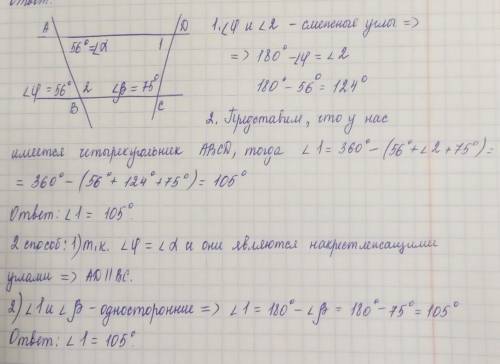 Ответ.
A D
56°=∠α 1
∠φ=56° 2 ∠β=75°
B C
1. ∠φ и ∠2 - смежные углы ⇒
⇒ 180° - ∠φ = ∠2
180° - 56° = 124°
2. Представим, что у нас
имеется четырехугольник ABCD, тогда ∠1 = 360° - (56° + ∠2 + 75°) =
= 360° - (56° + 124° + 75°) = 105°
Ответ: ∠1 = 105°.
2 способ: 1) т.к. ∠φ = ∠α и они являются накрестлежащими
углами ⇒ AD||BC.
2) ∠1 и ∠β - односторонние ⇒ ∠1 = 180° - ∠β = 180° - 75° = 105°
Ответ: ∠1 = 105°